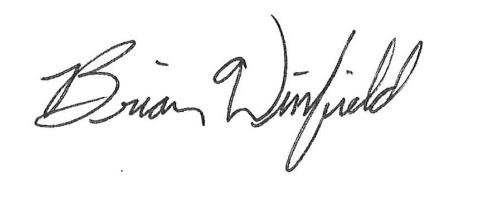 Brian Winfield